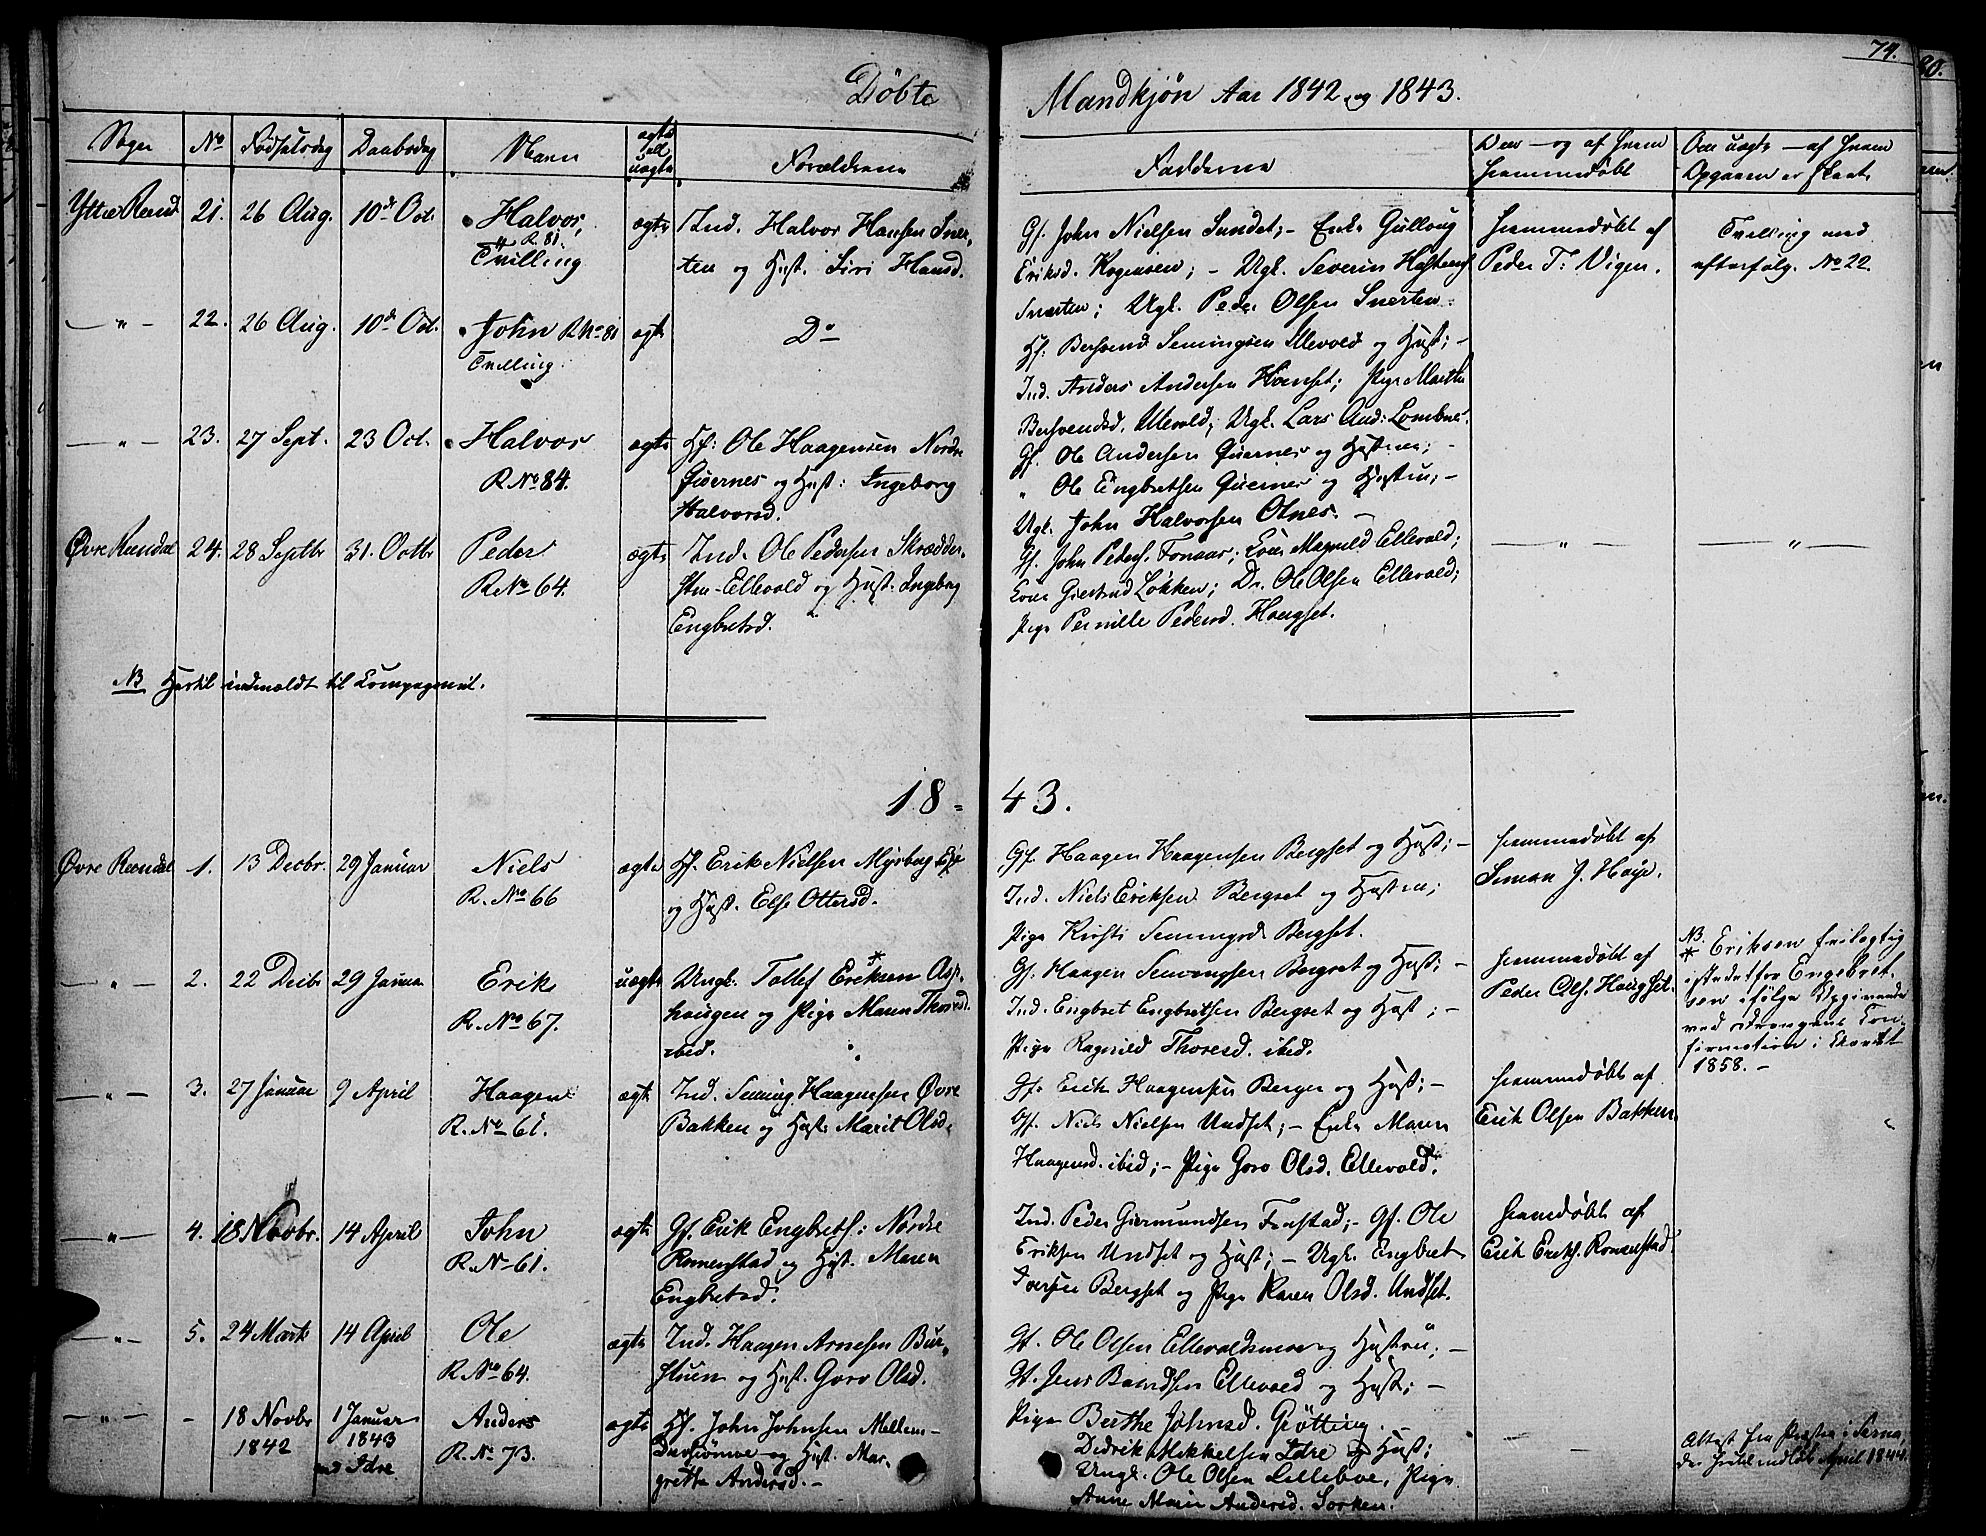 74.
80.
Döbte Mandkjön Aar 1842 og 1843.
Sogn No Födselsdag Daabsdag Navn ægte ell uægte Forældrene Fadderne Om og af hvem hjemmedöbt Om uægte af hvem Opgaven er skeet
Yttre Rend. 21. 26 Aug. 10de Oct. Halvor, R. 81. Tvilling ægte Ind. Halvor Hansen Sner-
ten og Hust. Siri Hansd.
Gf. John Nielsen Sundet; - Enke Gullaug
Eriksd. ; - Ugk. Severin
Snerten; Ugk. Peder Olsen Snerten.
hjemmedöbt af
Peder T: Vigen.
Tvilling med
efterfölg. No 22.
— " — 22. 26 Aug. 10de Oct. John R No 81 Tvilling. ægte Do
Gf. Bersvend Semingsen Ellevold og Hust; -
Ind. Anders Andersen Hornset; Pige Marthe
Bersvendsd. Ellevold; Ugk. Lars And: Lombnes.
— " — 23. 27 Sept. 23 Oct. Halvor R No 84. ægte Gf: Ole Haagensen Nordre
Qvernes og Hust: Ingeborg
Halvorsd.
Gf. Ole Andersen Qvernes og Hustrue; -
" Ole Engbretsen Qvernes og Hustru; -
Ugk. John Halvorsen Olnes. -
Övre Rendal 24. 28 Septbr 31. Octbr Peder R No 64. ægte Ind. Ole Pedersen Skrædder-
stue-Ellevold og Hust. Ingeborg
Engbretsd.
Gf. John Peders. Fonaas; Kone Magnild Ellevold;
Kone Giertrud Løkken; Dr. Ole Olsen Ellevold;
Pige Pernille Pedersd. Haugset.
— " — — " —
NB Hertil indmeldt til Compagniet.
18 = 43.
Övre Rendal 1. 13 Decbr. 29 Januar Niels R. No 66 ægte Gf. Erik Nielsen Myrborg
og Hust. Else Ottersd.
Gf. Haagen Haagensen Bergset og Hust; -
Ind. Niels Eriksen Bergset og Hustrue;
Pige Kirsti Semingsd. Bergset.
hjemmedöbt af
Simen J. Höye.
— " — 2. 22 Decbr 29 Januar Erik R. No 67. uægte Ungk. Tollef Eriksen* Asp-
haugen og Pige Maren Thoresd.
ibid.
Gf. Haagen Semingsen Bergset og Hust; -
Ind. Engbret Engbretsen Bergset og Hust; -
Pige Ragnild Thoresd. ibid.
hjemmedöbt af
Peder Ols. Haugset.
NB.
* Eriksen feilagtig
istedetfor Engebret-
sen ifölge Opgivende
ved drengens Con-
firmation i Høsten
1858. -
— " — 3. 27 Januar 9 April Haagen R. No 61. ægte Ind. Seming Haagensen Övre
Bakken og Hust. Marit Olsd.
Gf. Erik Haagensen Berger og Hust; -
Gf. Niels Nielsen Undset; - Enke Maren
Haagensd. ibid; - Pige Goro Olsd. Ellevold.
hjemmedöbt af
Erik Olsen Bakken.
— " — 4. 18 Novbr. 14 April John R. No 61. ægte Gf. Erik Engbrets: Nordre
Romenstad og Hust. Maren
Engbretsd.
Ind. Peder Giermundsen Finstad; - Gf. Ole
Eriksen Undset og Hust; - Ugk. Engbret
Iversen Bergset og Pige Karen Olsd. Undset.
hjemdöbt af
Erik Eriks. Romenstad.
— " — 5. 24 Marts 14 April Ole R. No 64. ægte Ind. Haagen Arnesen Bur-
stuen og Hust. Goro Olsd.
Gf. Ole Olsen Ellevoldsmoe og Hustru; -
Gf. Jens Baardsen Ellevold og Hust; -
Pige Berthe Johnsd. Grötting. -
— " — - 18 Novbr 1842 1 Januar 1843 ved Idre Anders R. No 73. ægte Gf. John Johnsen Mellem-
og Hust. Mar-
grethe Andersd. -
Didrik Mikkelsen Idre og Hust;
Ungk. Ole Olsen Lilleboe, Pige
Anne Marie Andersd. Sorken.
Attest fra Præsten i Serna,
der hertil indløb April 1844.